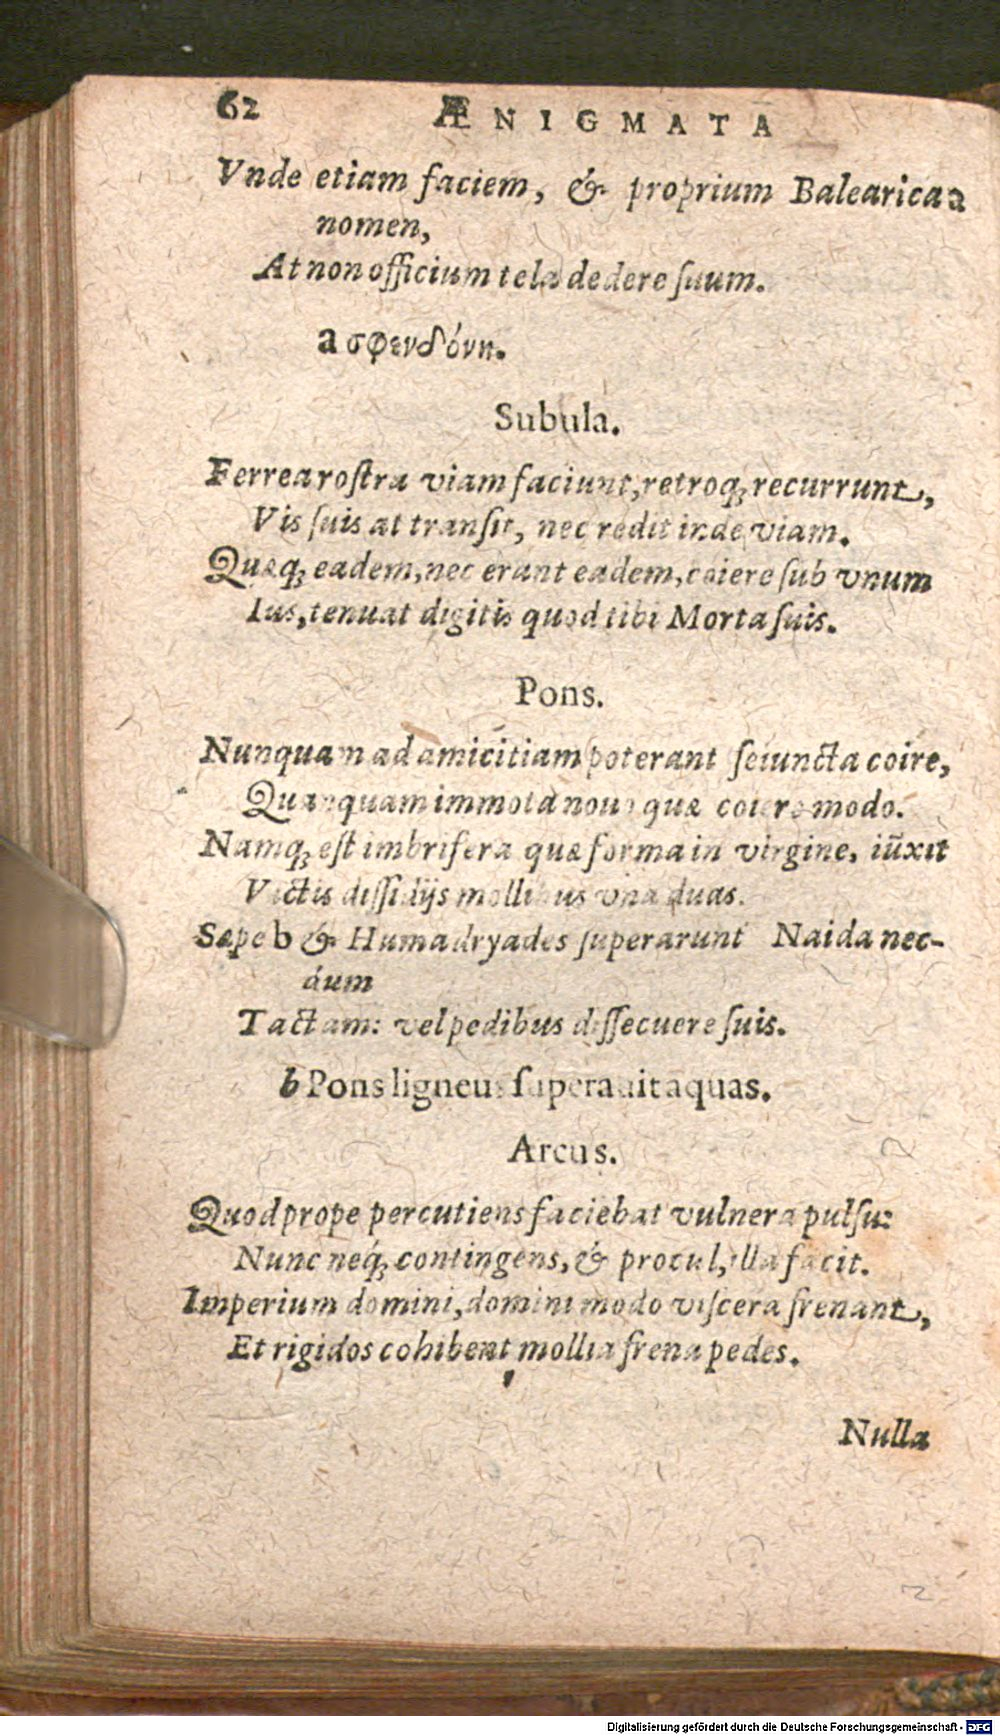 62 ÆNIGMATA
Vnde etiam faciem, & proprium Balearica a
nomen,
At non officium tela dedere ſuum.
a σφενδόνη.
Subula.
Ferrea roſtra viam faciunt, retroq; recurrunt,
Vis ſuis at tranſit, nec redit inde viam.
Quæq; eadem, nec erant eadem, coiere ſub vnum
Ius, tenuat digitis quod tibi Morta ſuis.
Pons.
Nunquam ad amicitiam poterant ſeiuncta coire,
Quanquam immota nouo quæ coiere modo.
Namq; eſt imbrifera quæ forma in virgine, iūxit
Victis diſſidijs mollibus vna duas.
Sæpe b & Humadryades ſuperarunt Naida nec-
dum
Tactam: vel pedibus diſſecuere ſuis.
b Pons ligneus ſuperauit aquas.
Arcus.
Quod prope percutiens faciebat vulnera pulſu:
Nunc neq́; contingens, & procul, illa facit.
Imperium domini, domini modo viſcera frenant,
Et rigidos cohibent mollia frena pedes.
Nulla
Digitalisierung gefördert durch die Deutsche Forschungsgemeinschaft - DFG